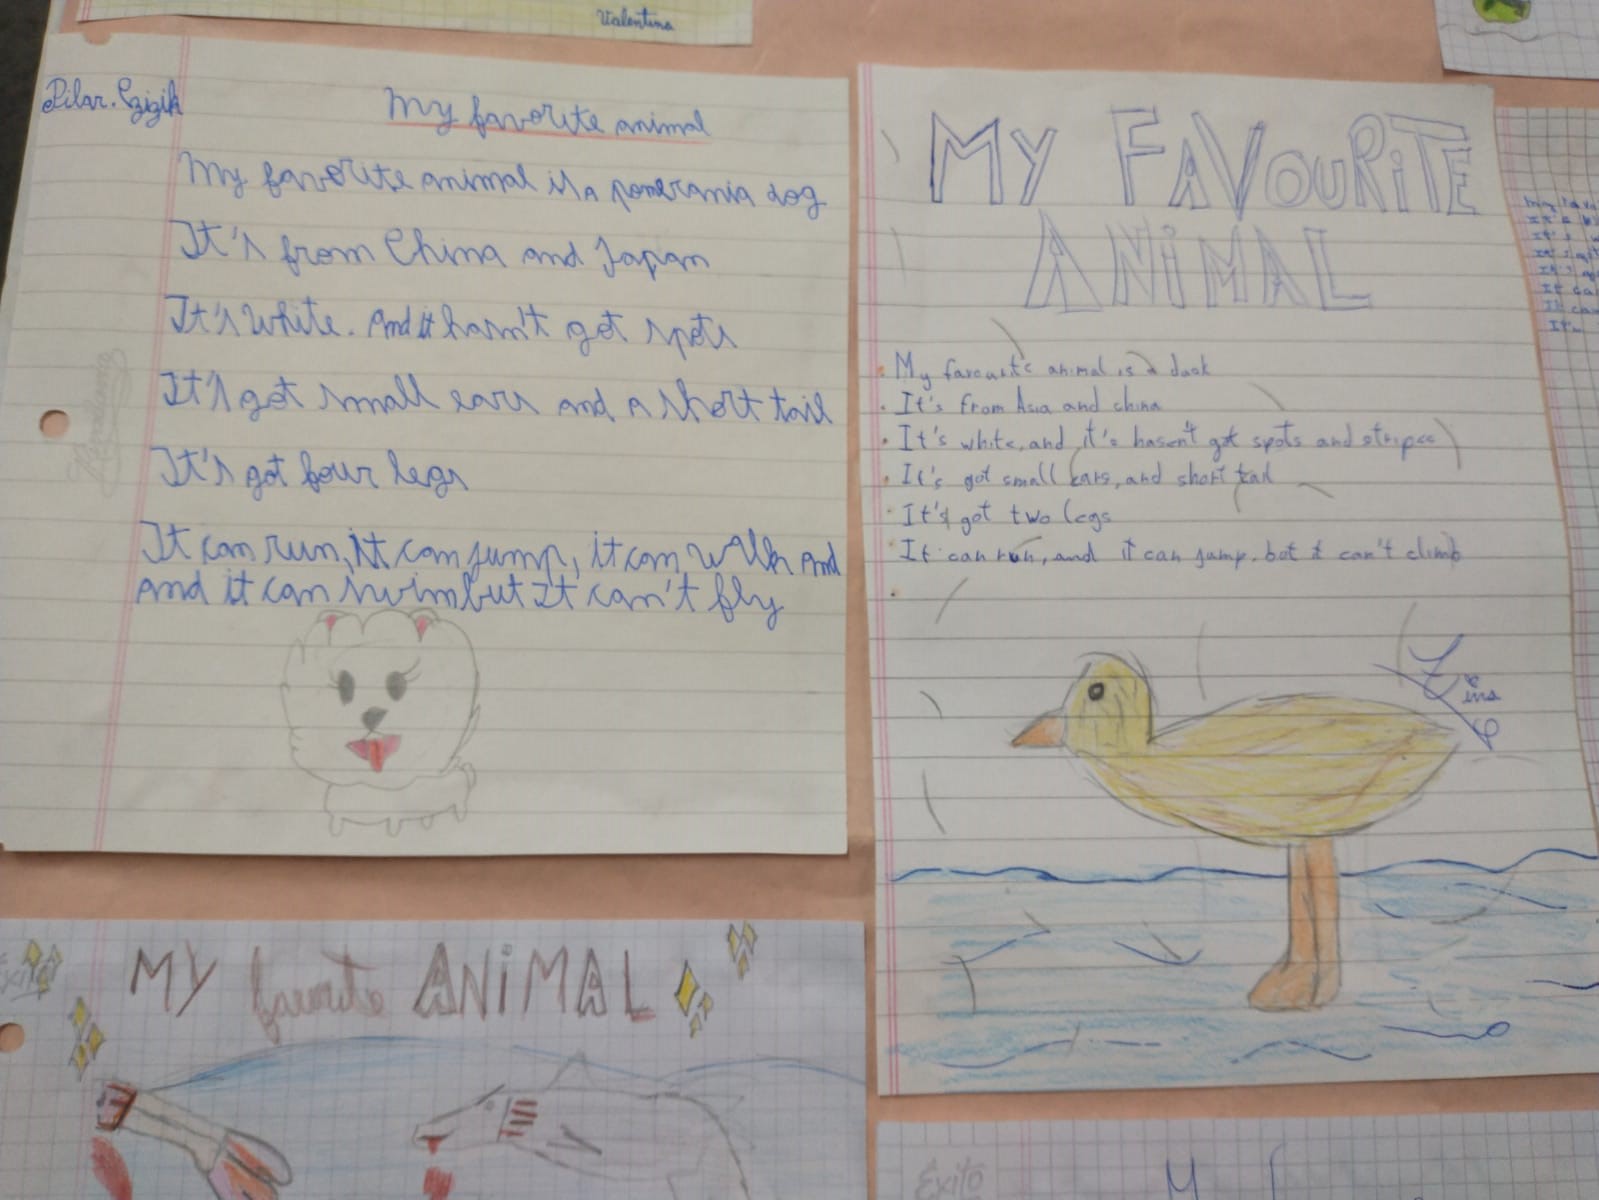 Valentina
Pilar. Czizik
My favorite animal
My favorite animal is a pomerania dog
It's from China and Japan
It's white. And it hasn't got spots
It's got small ears and a short tail
It's got four legs
It can run, it can jump, it can walk and
and it can swim but It can't fly
Rivadavia
MY FAVOURiTE
ANiMAL
• My favourite animal is a duck
• It's from Asia and china
• It's white, and it's hasen't got spots and stripes
• It's got small ears, and short tail
• It's got two legs
• It can run, and it can jump. but it can't climb
Éxito
MY favorite ANiMAL
Éxito